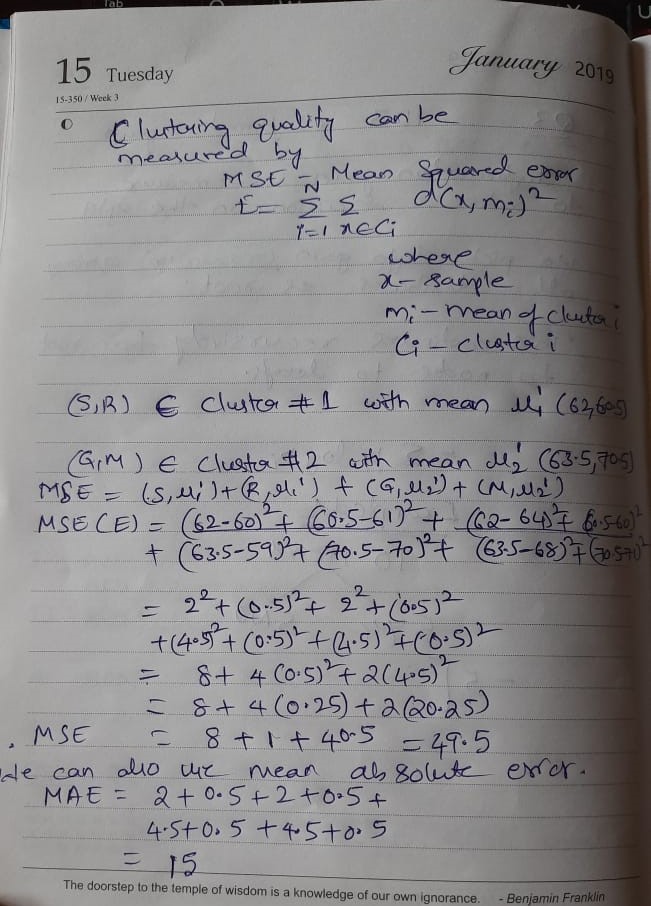 Tab
U
15 Tuesday
January 2019
15-350 / Week 3
Clustering quality can be
measured by
MSE - Mean Squared error
E = N Σ i=1 Σ x∈Ci d(x, mi)²
where
x - sample
mi - mean of cluster i
Ci - cluster i
(S,R) ∈ Cluster #1 with mean μ1' (62,60.5)
(G,M) ∈ Cluster #2 with mean μ2' (63.5,70.5)
MSE = (S,μ1')+(R,μ1') + (G,μ2')+(M,μ2')
MSE(E) = (62-60)²+ (60.5-61)² + (62-64)²+ (60.5-60)²
+ (63.5-59)²+ (70.5-70)²+ (63.5-68)²+(70.5-71)²
= 2²+(0.5)²+ 2²+(0.5)²
+(4.5)²+(0.5)²+(4.5)²+(0.5)²
= 8+ 4(0.5)²+2(4.5)²
= 8+ 4(0.25)+2(20.25)
. MSE = 8+1+40.5 = 49.5
We can also use mean absolute error.
MAE = 2+0.5+2+0.5+
4.5+0.5+4.5+0.5
= 15
The doorstep to the temple of wisdom is a knowledge of our own ignorance. - Benjamin Franklin